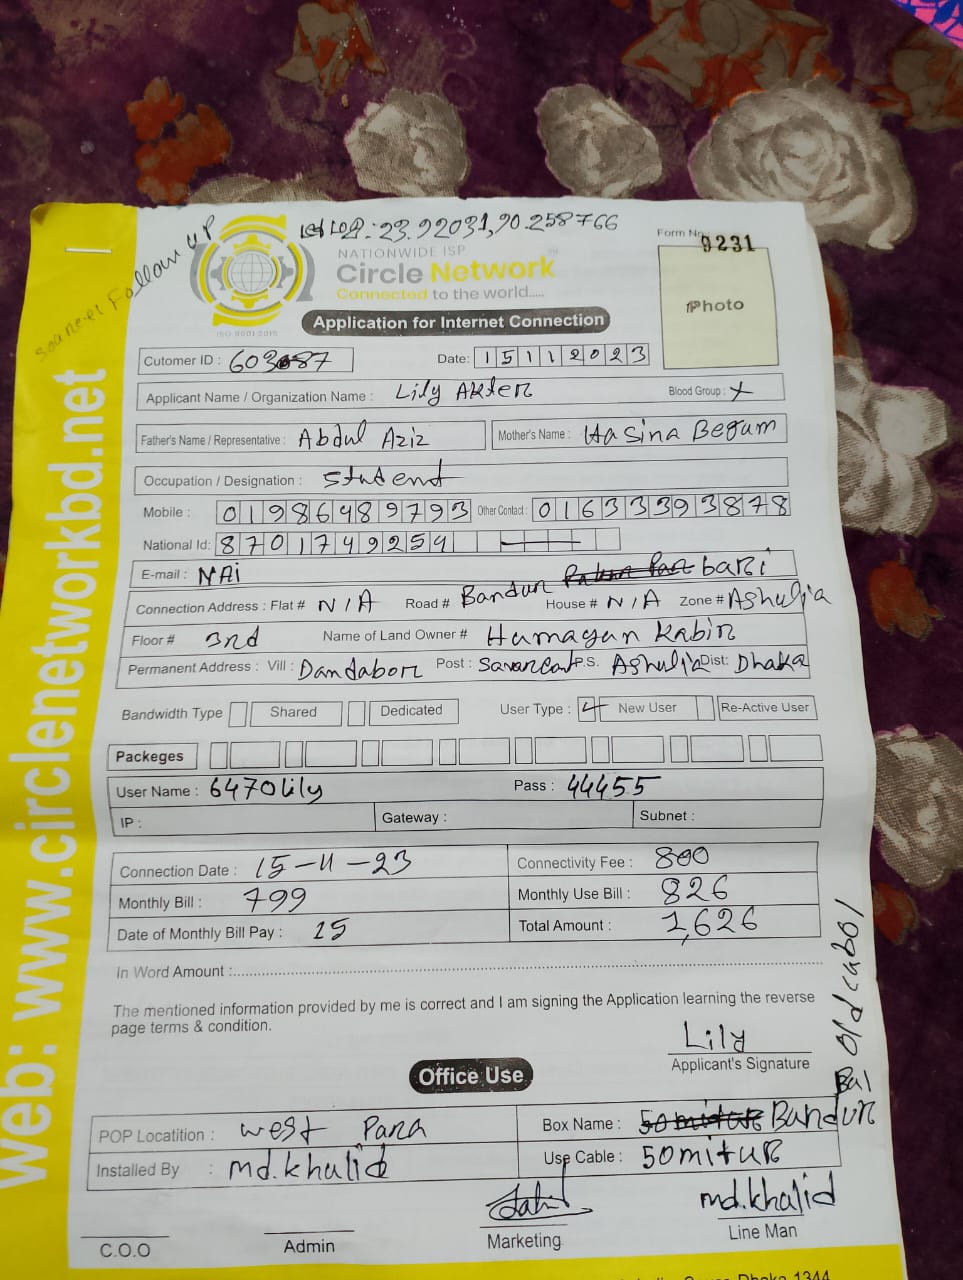 Lat Log: 23.92031,90.258766
Follow up
NATIONWIDE ISP
Circle Network
Connected to the world.....
ISO 9001:2015
Form No. 9231
Photo
Application for Internet Connection
Cutomer ID : 603087
Date: 15112023
Applicant Name / Organization Name : Lily Akter
Blood Group : X
Father's Name / Representative : Abdul Aziz
Mother's Name : Hasina Begum
Occupation / Designation : Student
Mobile : 01986489793 Other Contact : 01633393878
National Id: 8701749254
E-mail : NAi
Connection Address : Flat # N/A Road # Bandur bari House # N/A Zone # Ashulia
Floor # 3rd Name of Land Owner # Humayun Kabir
Permanent Address : Vill : Dandabor Post : Savarcant P.S. Ashulia Dist: Dhaka
Bandwidth Type Shared Dedicated User Type : New User Re-Active User
Packeges
User Name : 6470lily Pass : 44455
IP : Gateway : Subnet :
Connection Date : 15-11-23 Connectivity Fee : 800
Monthly Bill : 799 Monthly Use Bill : 826
Date of Monthly Bill Pay : 15 Total Amount : 1,626
In Word Amount :
The mentioned information provided by me is correct and I am signing the Application learning the reverse
page terms & condition.
Lily
Applicant's Signature
Office Use
POP Locatition : west Para Box Name : Bandur
Bari
Installed By : md.khalid Use Cable : 50mitur
old cabol
md.khalid
C.O.O Admin Marketing Line Man
web: www.circlenetworkbd.net
Dhaka 1344